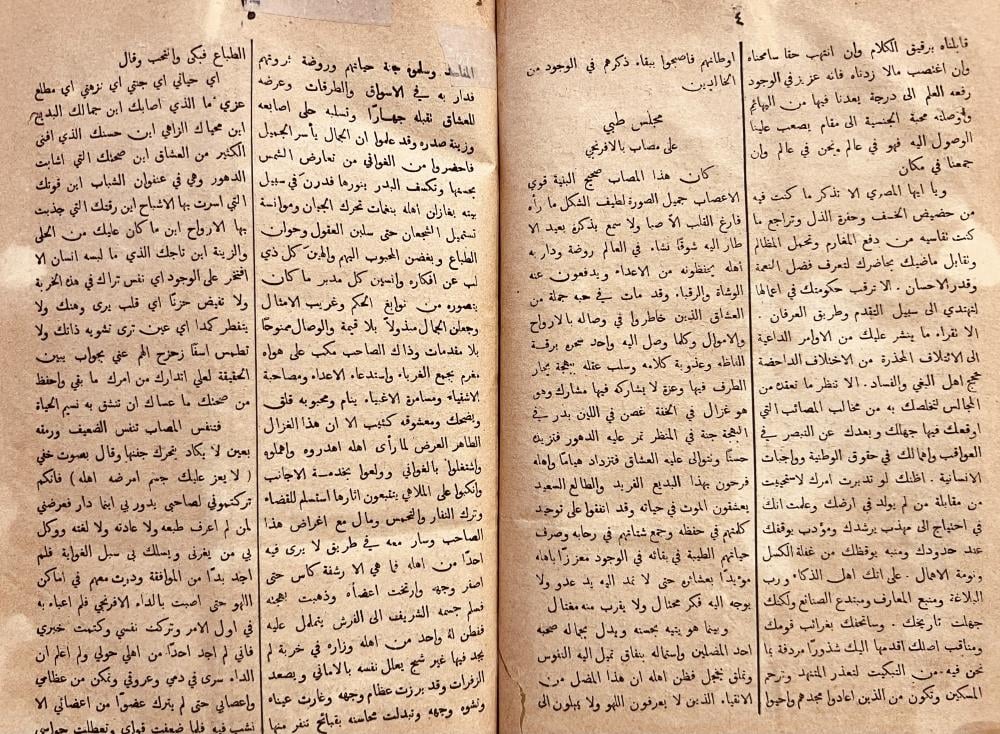 ٤
قابلناه برقيق الكلام وان انتهب حقا سامحناه
وان اغتصب مالا زدناه فانه عزيز في الوجود
رفعه العلم الى درجة يعدنا فيها من البهائم
وأوصلته محبة الجنسية الى مقام يصعب علينا
الوصول اليه فهو في عالم ونحن في عالم وان
جمعنا في مكان
ويا ايها المصري الا تذكر ما كنت فيه
من حضيض الخسف وحفرة الذل وتراجع ما
كنت تقاسيه من دفع المغارم وتحمل المظالم
وتقابل ماضيك بحاضرك لتعرف فضل النعمة
وقدر الاحسان . الا ترقب حكومتك في اعمالها
لتهتدي الى سبيل التقدم وطريق العرفان .
الا تقراء ما ينشر عليك من الاوامر الداعية
الى الائتلاف المحذرة من الاختلاف الداحضة
حجج اهل البغي والفساد . الا تنظر ما تعقده من
المجالس لتخلصك به من مخالب المصائب التي
اوقعك فيها جهلك وبعدك عن التبصر في
العواقب واهمالك في حقوق الوطنية وواجبات
الانسانية . اظنك لو تدبرت امرك لاستحييت
من مقابلة من لم يولد في ارضك وعلمت انك
في احتياج الى مهذب يرشدك ومؤدب يوقفك
عند حدودك ومنبه يوقظك من غفلة الكسل
ونومة الاهمال . على انك اهل الذكاء ورب
البلاغة ومنبع المعارف ومبتدع الصنائع ولكنك
جهلت تاريخك . وسأتحفك بغرائب قومك
ومناقب اصلك اقدمها اليك شذورًا مردفة بما
نحن فيه من التبكيت لتعذر المتنهد وترحم
المسكين وتكون من الذين اعادوا مجدهم واحيوا
اوطانهم فاصبحوا ببقاء ذكرهم في الوجود من
الخالدين
مجلس طبي
على مصاب بالافرنجي
كان هذا المصاب صحيح البنية قوي
الاعصاب جميل الصورة لطيف الشكل ما رأه
فارغ القلب الا صبا ولا سمع بذكره بعيد الا
طار اليه شوقًا نشاء في العالم روضة ودار به
اهله يحفظونه من الاعداء ويدفعون عنه
الوشاة والرقباء وقد مات في حبه جملة من
العشاق الذين خاطروا في وصاله بالارواح
والاموال وكلما وصل اليه واحد سحره برقة
الفاظه وعذوبة كلامه وسلب عقله ببهجة يحار
الطرف فيها وعزة لا يشاركه فيها مشارك وهو
هو غزال في الخفة غصن في اللين بدر في
البهجة جنة في المنظر تمر عليه الدهور فتزيده
حسنًا وتتوالى عليه العشاق فتزداد هيامًا واهله
فرحون بهذا البديع الفريد والطالع السعيد
يعشقون الموت في حياته وقد اتفقوا على توحيد
كلمتهم في حفظه وجمع شتاتهم في رحابه وصرف
حياتهم الطيبة في بقائه في الوجود معززًا باهله
مؤيدًا بعشائره حتى لا تمد اليه يد عدو ولا
يوجه اليه فكر محتال ولا يقرب منه مغتال
وبينما هو يتيه بحسنه ويدل بجماله صحبه
احد المضلين واستماله بنفاق تميل اليه النفوس
وتملق يخجل فظن اهله ان هذا المضل من
الاتقياء الذين لا يعرفون اللهو ولا يميلون الى
وسلموه حياتهم وروضة ثروتهم
فدار به في الاسواق والطرقات وعرضه
للعشاق تقبله جهارًا وتسلبه حلى اصابعه
وزينة صدره وقد علموا ان الجمال يأسر الجميل
فاحضروا من الغواني من تعارض الشمس
بحسنها وتكسف البدر بنورها فدرن في سبيل
بيته بغازان اهله بنغمات تحرك الجبان وموانسة
تستميل الشجعان حتى سلبن العقول وحولن
الطباع وبغضن المحبوب اليهم والهين كل ذي
لب عن افكاره وانسين كل مدبر ما كان
يتصوره من نوابغ الحكم وغريب الامثال
وجعلن الجمال مبذولًا بلا قيمة والوصال ممنوحًا
بلا مقدمات وذاك الصاحب مكب على هواه
مغرم بجمع الغرباء واستدعاء الاعداء ومصاحبة
الاشقياء ومسامرة الاغبياء ينام ومحبوبه قلق
ويضحك ومعشوقه كئيب الا ان هذا الغزال
الطاهر العرض لما رأى اهله اهدروه واهملوه
واشتغلوا بالغواني وولعوا بخدمة الاجانب
وانكبوا على الملاهي يتبعون اثارها استسلم للقضاء
وترك النفار والتحمس ومال مع اغراض هذا
الصاحب وسار معه في طريق لا يرى فيه
احدًا من اهله فما هي الا رشفة كاس حتى
اصفر وجهه وارتخت اعضأه وذهبت بهجته
فسلم جسمه الشريف الى الفرش يتململ عليه
ففطن له واحد من اهله وزاره في خربة لم
يجد فيها غير شبح يعلل نفسه بالاماني ويصعد
الزفرات وقد برزت عظام وجهه وغارت عيناه
وتشوه وجهه وتبدلت محاسنه بقبائح تنفر منها
الطباع فبكى وانتحب وقال
اي حياتي اي جنتي اي نزهتي اي مطلع
عزي ما الذي اصابك اين جمالك البديع
اين محياك الزاهي اين حسنك الذي افنى
الكثير من العشاق اين صحتك التي اشابت
الدهور وهي في عنفوان الشباب اين قوتك
التي اسرت بها الاشباح اين رقتك التي جذبت
بها الارواح اين ما كان عليك من الحلى
والزينة اين تاجك الذي ما لبسه انسان الا
افتخر على الوجود اي نفس تراك في هذه الخربة
ولا تفيض حزنًا اي قلب يرى وهنك ولا
يتفطر كمدا اي عين ترى تشويه ذاتك ولا
تطمس اسفًا زحزح الهم عني بجواب يبين
الحقيقة لعلي اتدارك من امرك ما بقي واحفظ
من صحتك ما عساك ان تنشق به نسيم الحياة
فتنفس المصاب تنفس الضعيف ورمقه
بعين لا يكاد يتحرك جفنها وقال بصوت خفي
( لا يعز عليك جسم امرضه اهله ) فانكم
تركتموني لصاحبي يدور بي اينما دار فعرضني
لمن لم اعرف طبعه ولا عادته ولا لغته ووكل
بي من يغرني ويسلك بي سبل الغواية فلم
اجد بدًا من الموافقة ودرت معهم في اماكن
اللهو حتى اصبت بالداء الافرنجي فلم اعباء به
في اول الامر وتركت نفسي وكتمت خبري
فاني لم اجد احدًا من اهلي حولي ولا اعلم ان
الداء سرى في دمي وعروقي وتمكن من عظامي
واعصابي حتى لم يترك عضوًا من اعضائي الا
نشب فيه فلما ضعفت قواي وتعطلت حواسي